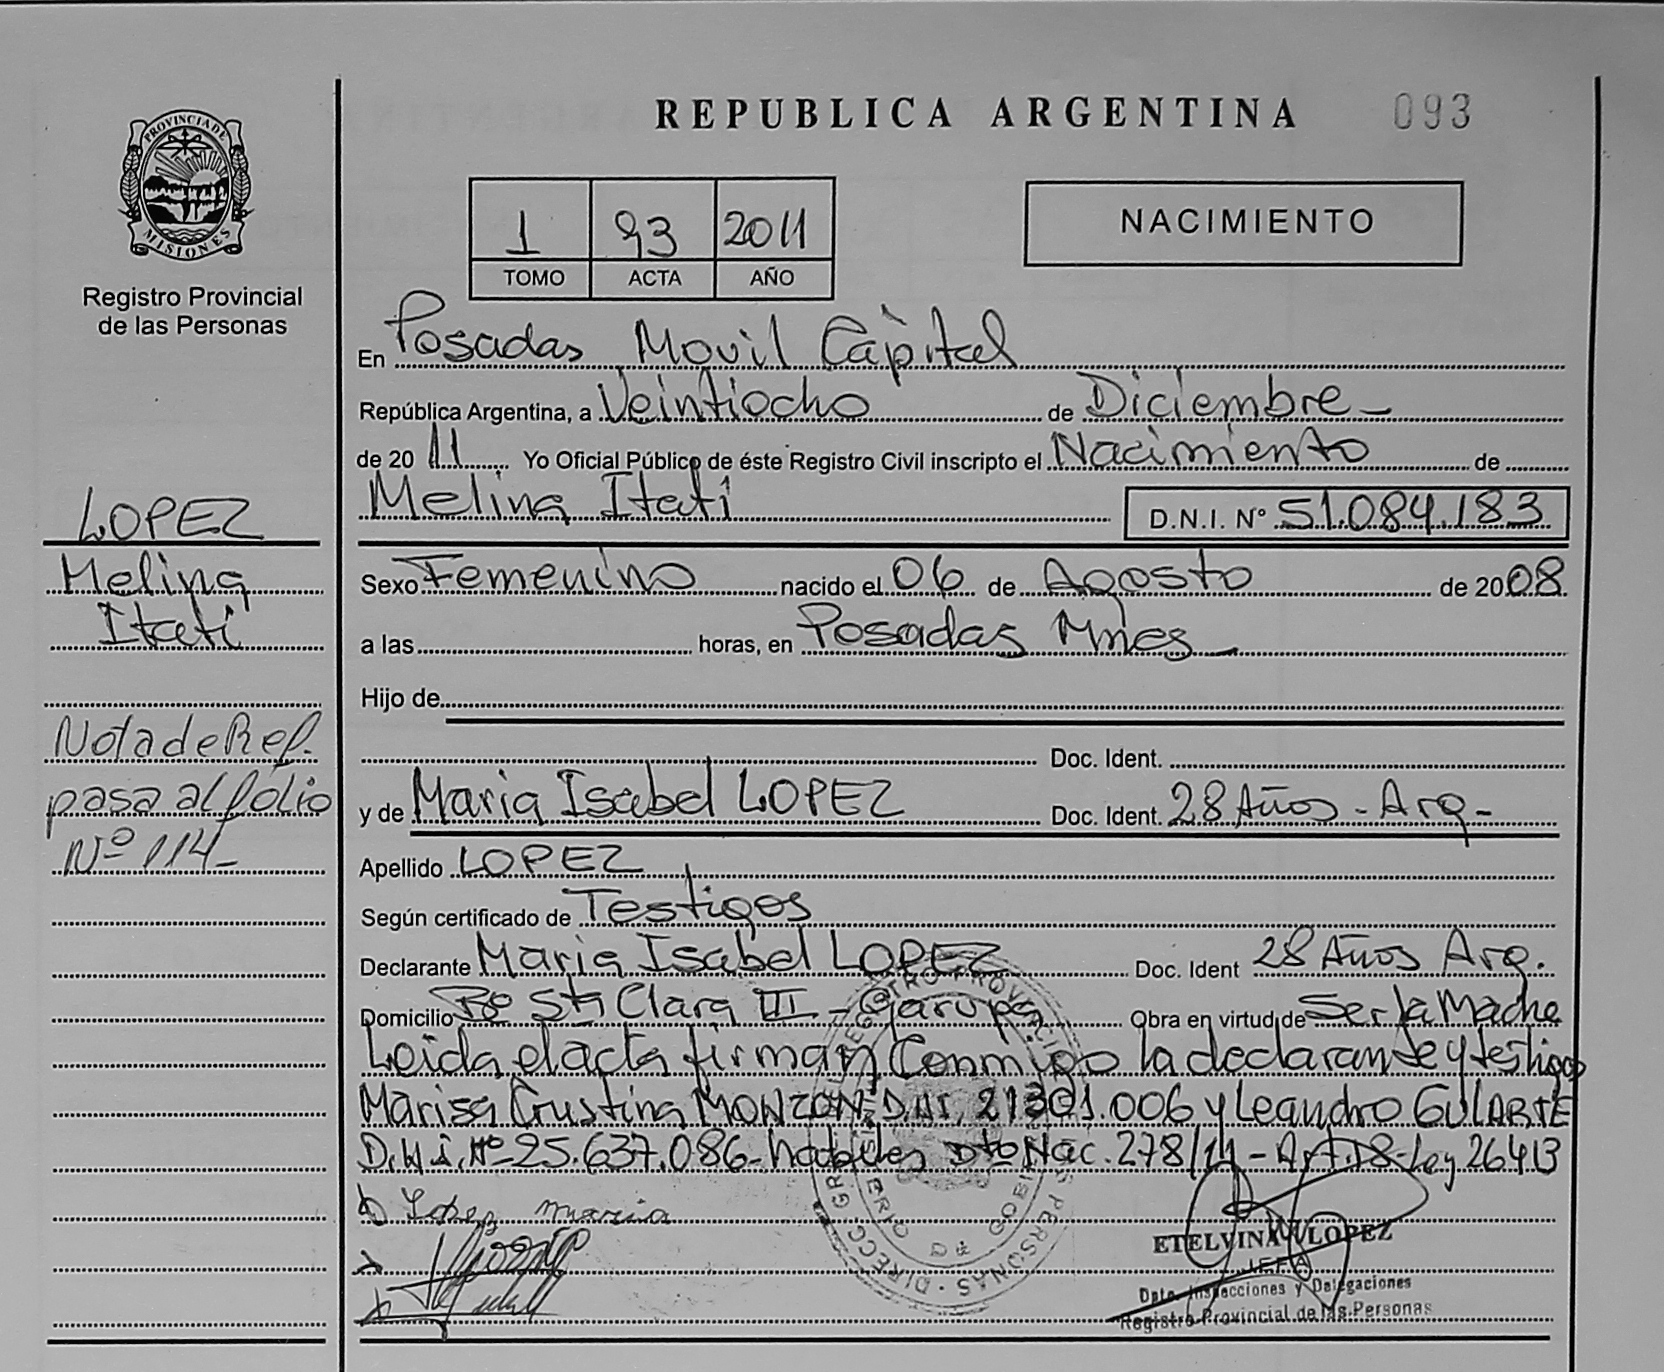 REPUBLICA ARGENTINA 093
PROVINCIA DE
MISIONES
Registro Provincial
de las Personas
1 93 2011
TOMO ACTA AÑO
NACIMIENTO
En Posadas Movil Capital
República Argentina, a Veintiocho de Diciembre -
de 20 11 Yo Oficial Público de éste Registro Civil inscripto el Nacimiento de
Melina Itatí D.N.I. Nº 51.084.183
LOPEZ
Melina
Itatí
Nota de Ref.
pasa al fólio
Nº 114 -
Sexo Femenino nacido el 06 de Agosto de 2008
a las horas, en Posadas Mnes -
Hijo de
Doc. Ident.
y de Maria Isabel LOPEZ Doc. Ident. 28 Años - Arg -
Apellido LOPEZ
Según certificado de Testigos
Declarante Maria Isabel LOPEZ Doc. Ident 28 Años Arg.
Domicilio Bº Sta Clara III - Garupa Obra en virtud de Ser la Madre
Leida el acta firman Conmigo la declarante y testigos
Marisa Cristina MONZON D.N.I. 21.301.006 y Leandro GULARTE
D.N.I. Nº 25.637.086 - Dto Nac. 278/11 - Art. 18 - Ley 26413
Lopez maria
ETELVINA LOPEZ
JEFA
Dpto. Inspecciones y Delegaciones
Registro Provincial de las Personas